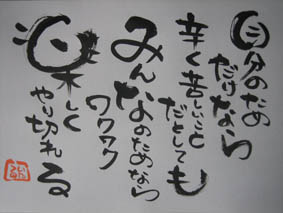 自分のため
だけなら
辛く苦しいこと
だとしても
みんなのためなら
ワクワク
楽しく
やり切れる